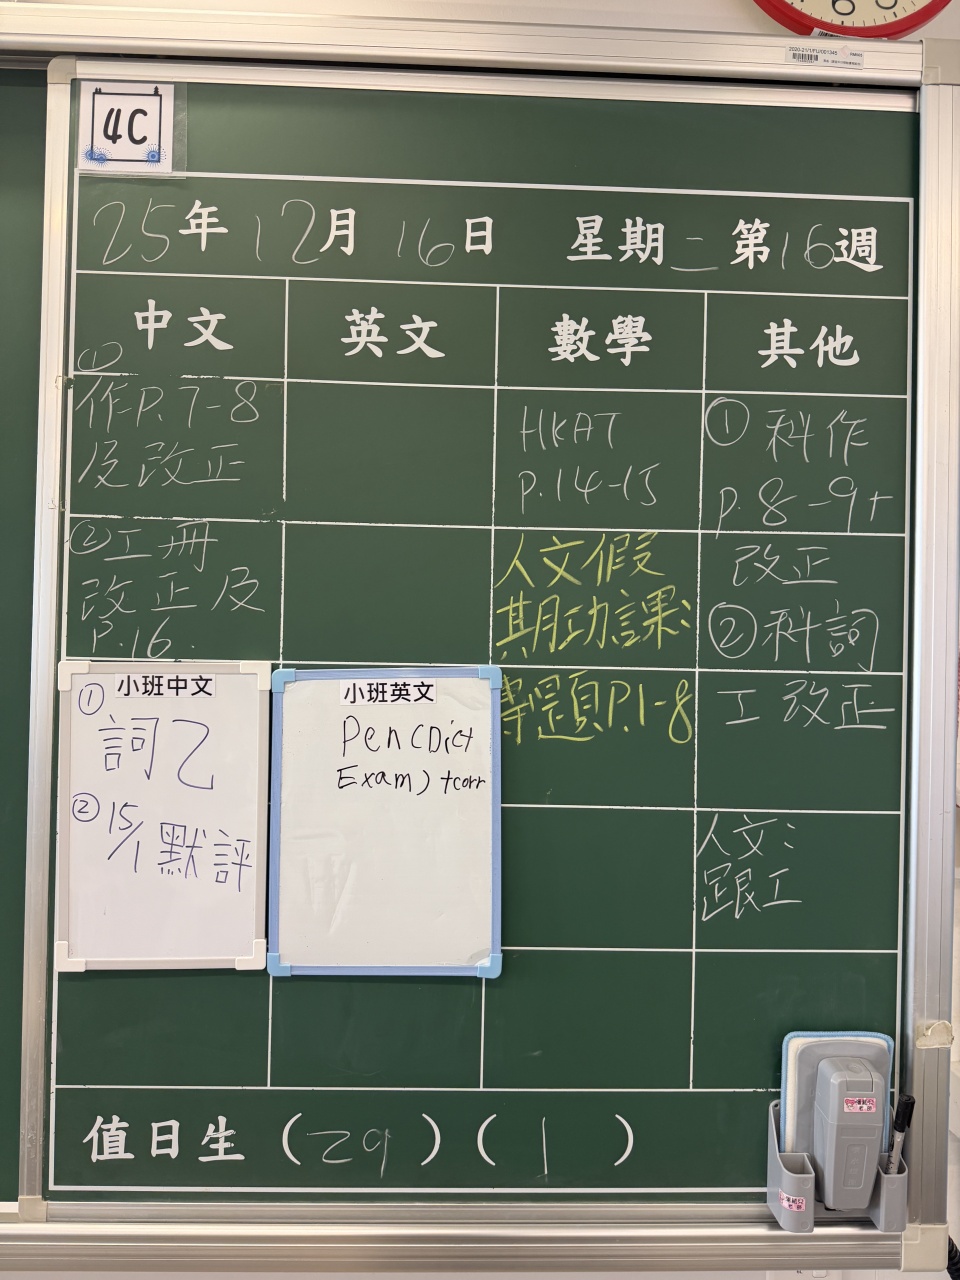 4C
25年12月16日 星期二 第16週
中文
①
作P.7-8
及改正
②工冊
改正及
P.16.
小班中文
①
詞乙
②15/1
默評
英文
小班英文
Pen(Dict
Exam)+corr
數學
HKAT
p.14-15
人文假
期功課:
專題P.1-8
其他
①科作
p.8-9+
改正
②科詞
工改正
人文:
跟工
值日生(29)(1)
2020-21/1/FU/001345